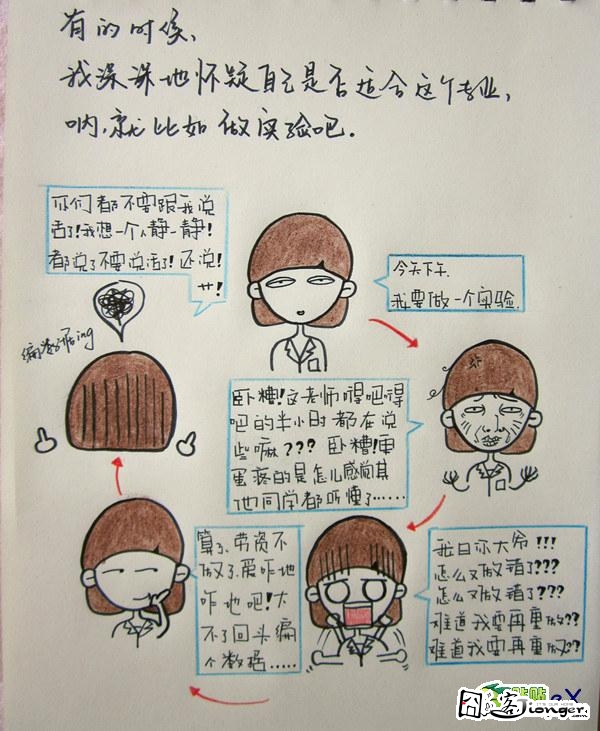 有的时候、
我深深地怀疑自己是否适合这个专业，
呐，就比如做实验吧．
你们都不要跟我说
话了！我想一个人静一静！
都说了不要说话了！还说！
艹！
今天下午．
我要做一个实验．
卧槽！这老师嘚吧嘚
吧的半小时都在说
些嘛？？？卧槽！更
蛋疼的是怎么感觉其
他同学都听懂了……
我日你大爷！！！
怎么又做殖了？？？
怎么又做殖了？？？
难道我要再重做？？
难道我要再重做？？
算了、劳资不
做了、爱咋地
咋地吧！大
不了回头编
个数据……
编数据ing
囧客
Jionger.com